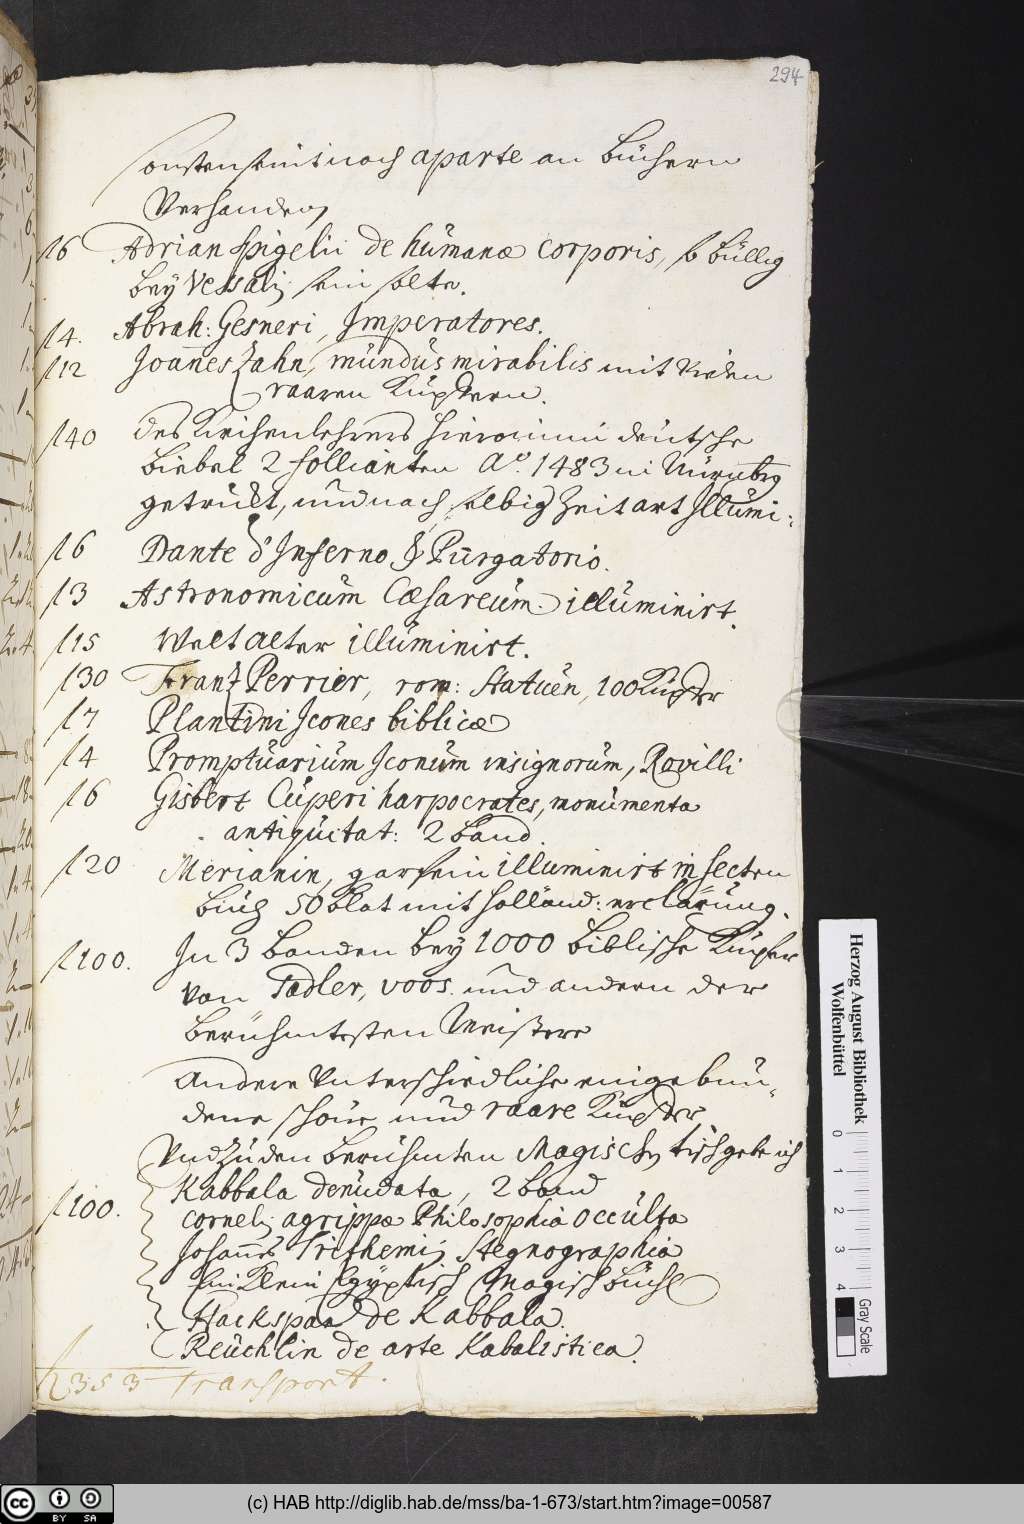 294
sonsten seint noch aparte an Büchern
Verhanden
f 6 Adrian Spigelii de hümanæ corporis, so büllig
bey Vessalij sein solte.
f 4. Abrah: Gesneri, Imperatores.
f 12 Joannes Zahn, mündüs mirabilis mit Vielen
raaren Küpffern.
f 40 des Kirchenlehrers Hieronimi deütsche
Biebel 2 follianten Aº. 1483 in Nürnbrg
getrückt, und nach selbig Zeit art Illümi:
f 6 Dante d'Inferno & Pürgatorio.
f 3 Astronomicüm Cæsareüm. illüminirt.
f 15 Welt alter illüminirt.
f 30 Frantz Perrier, rom: Statüen, 100 Küpffer
f 7 Plantini Icones biblicæ
f 4 Promptüariüm Iconüm insignorüm, Rovilli
f 6 Gisbert Cüperi harpocrates, monümenta
antiqüitat: 2 band.
f 20 Merianin, gar fein illuminirt insecten
büch 50 blat mit Holländ: erclärüng.
f 100. In 3 banden bey 1000 Biblische Küpfer
von Sadler, voos. und andern der
berühmtesten Meistere
Andere Unterschiedliche eingebün-
dene schöne und raare Küpffer
Und zü den berühmten Magischen tisch gebe ich
Kabbala denüdata, 2 band
f 100. Cornelij agrippæ Philosophia occülta
Johannes Trithemij Stegnographia
Ein Klein Egyptisch Magisch büchl
Hackspan de Kabbala.
Reüchlin de arte Kabalistica.
f 353 Transport.
Herzog August Bibliothek
Wolfenbüttel
0 1 2 3 4
Gray Scale
CC BY SA
(c) HAB http://diglib.hab.de/mss/ba-1-673/start.htm?image=00587